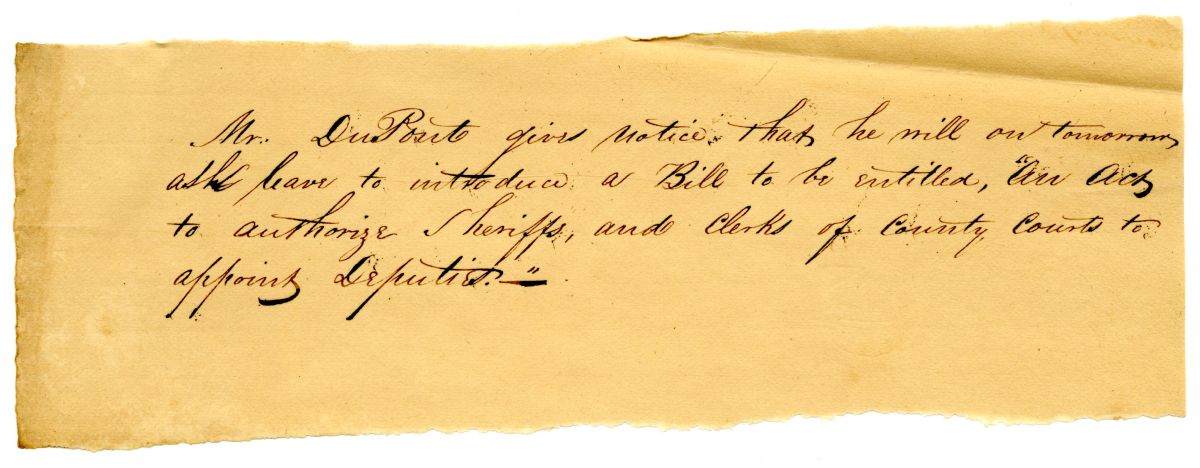 Mr. DuPont gives notice that he will on tomorrow
ask leave to introduce a Bill to be entitled, "An Act
to authorize Sheriffs, and Clerks of County Courts to
appoint Deputies."